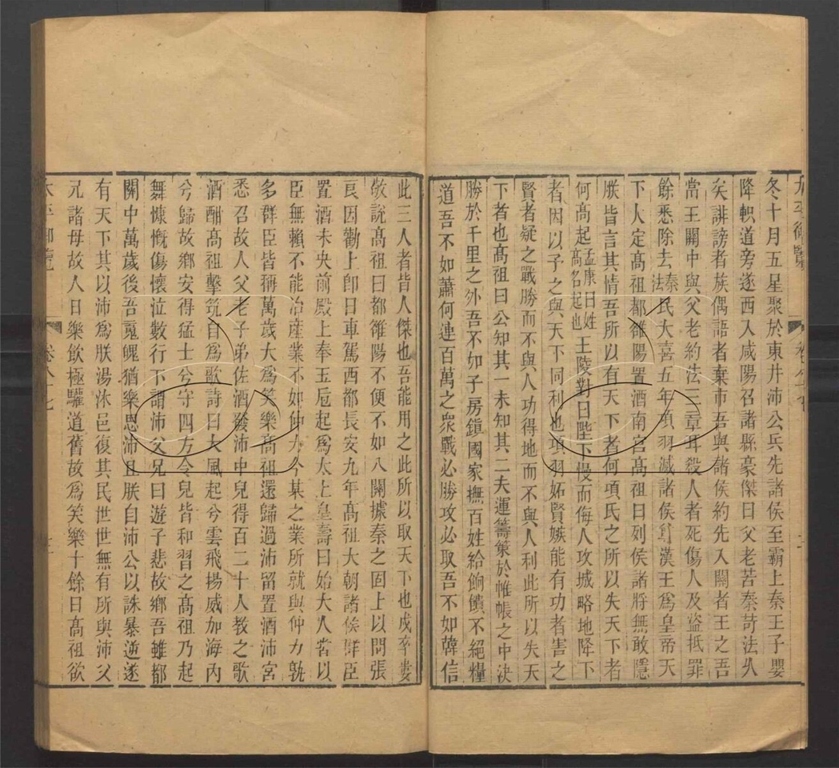 冬十月五星聚於東井沛公兵先諸侯至霸上秦王子嬰
降軹道旁遂西入咸陽召諸縣豪傑曰父老苦秦苛法久
矣誹謗者族偶語者棄市吾與諸侯約先入關者王之吾
當王關中與父老約法三章耳殺人者死傷人及盜抵罪
餘悉除去秦法民大喜五年項羽滅諸侯尊漢王為皇帝天
下人定髙祖都雒陽置酒南宮髙祖曰列侯諸將無敢隱
朕皆言其情吾所以有天下者何項氏之所以失天下者
何髙起孟康曰姓髙名起也王陵對曰陛下慢而侮人攻城略地降下
者因以予之與天下同利也項羽妬賢嫉能有功者害之
賢者疑之戰勝而不與人功得地而不與人利此所以失天
下者也髙祖曰公知其一未知其二夫運籌䇿於帷帳之中決
勝於千里之外吾不如子房鎮國家撫百姓給餉饋不絕糧
道吾不如蕭何連百萬之衆戰必勝攻必取吾不如韓信
此三人者皆人傑也吾能用之此所以取天下也戍卒婁
敬說髙祖曰都雒陽不便不如入關據秦之固上以問張
良因勸上即日車駕西都長安九年髙祖大朝諸侯群臣
置酒未央前殿上奉玉巵起為太上皇壽曰始大人常以
臣無賴不能治產業不如仲力今某之業所就與仲力孰
多群臣皆稱萬歲大為笑樂髙祖還歸過沛留置酒沛宮
悉召故人父老子弟佐酒發沛中兒得百二十人教之歌
酒酣髙祖擊筑自為歌詩曰大風起兮雲飛揚威加海內
兮歸故鄉安得猛士兮守四方令兒皆和習之髙祖乃起
舞慷慨傷懷泣數行下謂沛父兄曰遊子悲故鄉吾雖都
關中萬歲後吾魂魄猶樂思沛且朕自沛公以誅暴逆遂
有天下其以沛為朕湯沐邑復其民世世無有所與沛父
兄諸母故人日樂飲極驩道舊故為笑樂十餘日髙祖欲
太平御覽
卷八十七